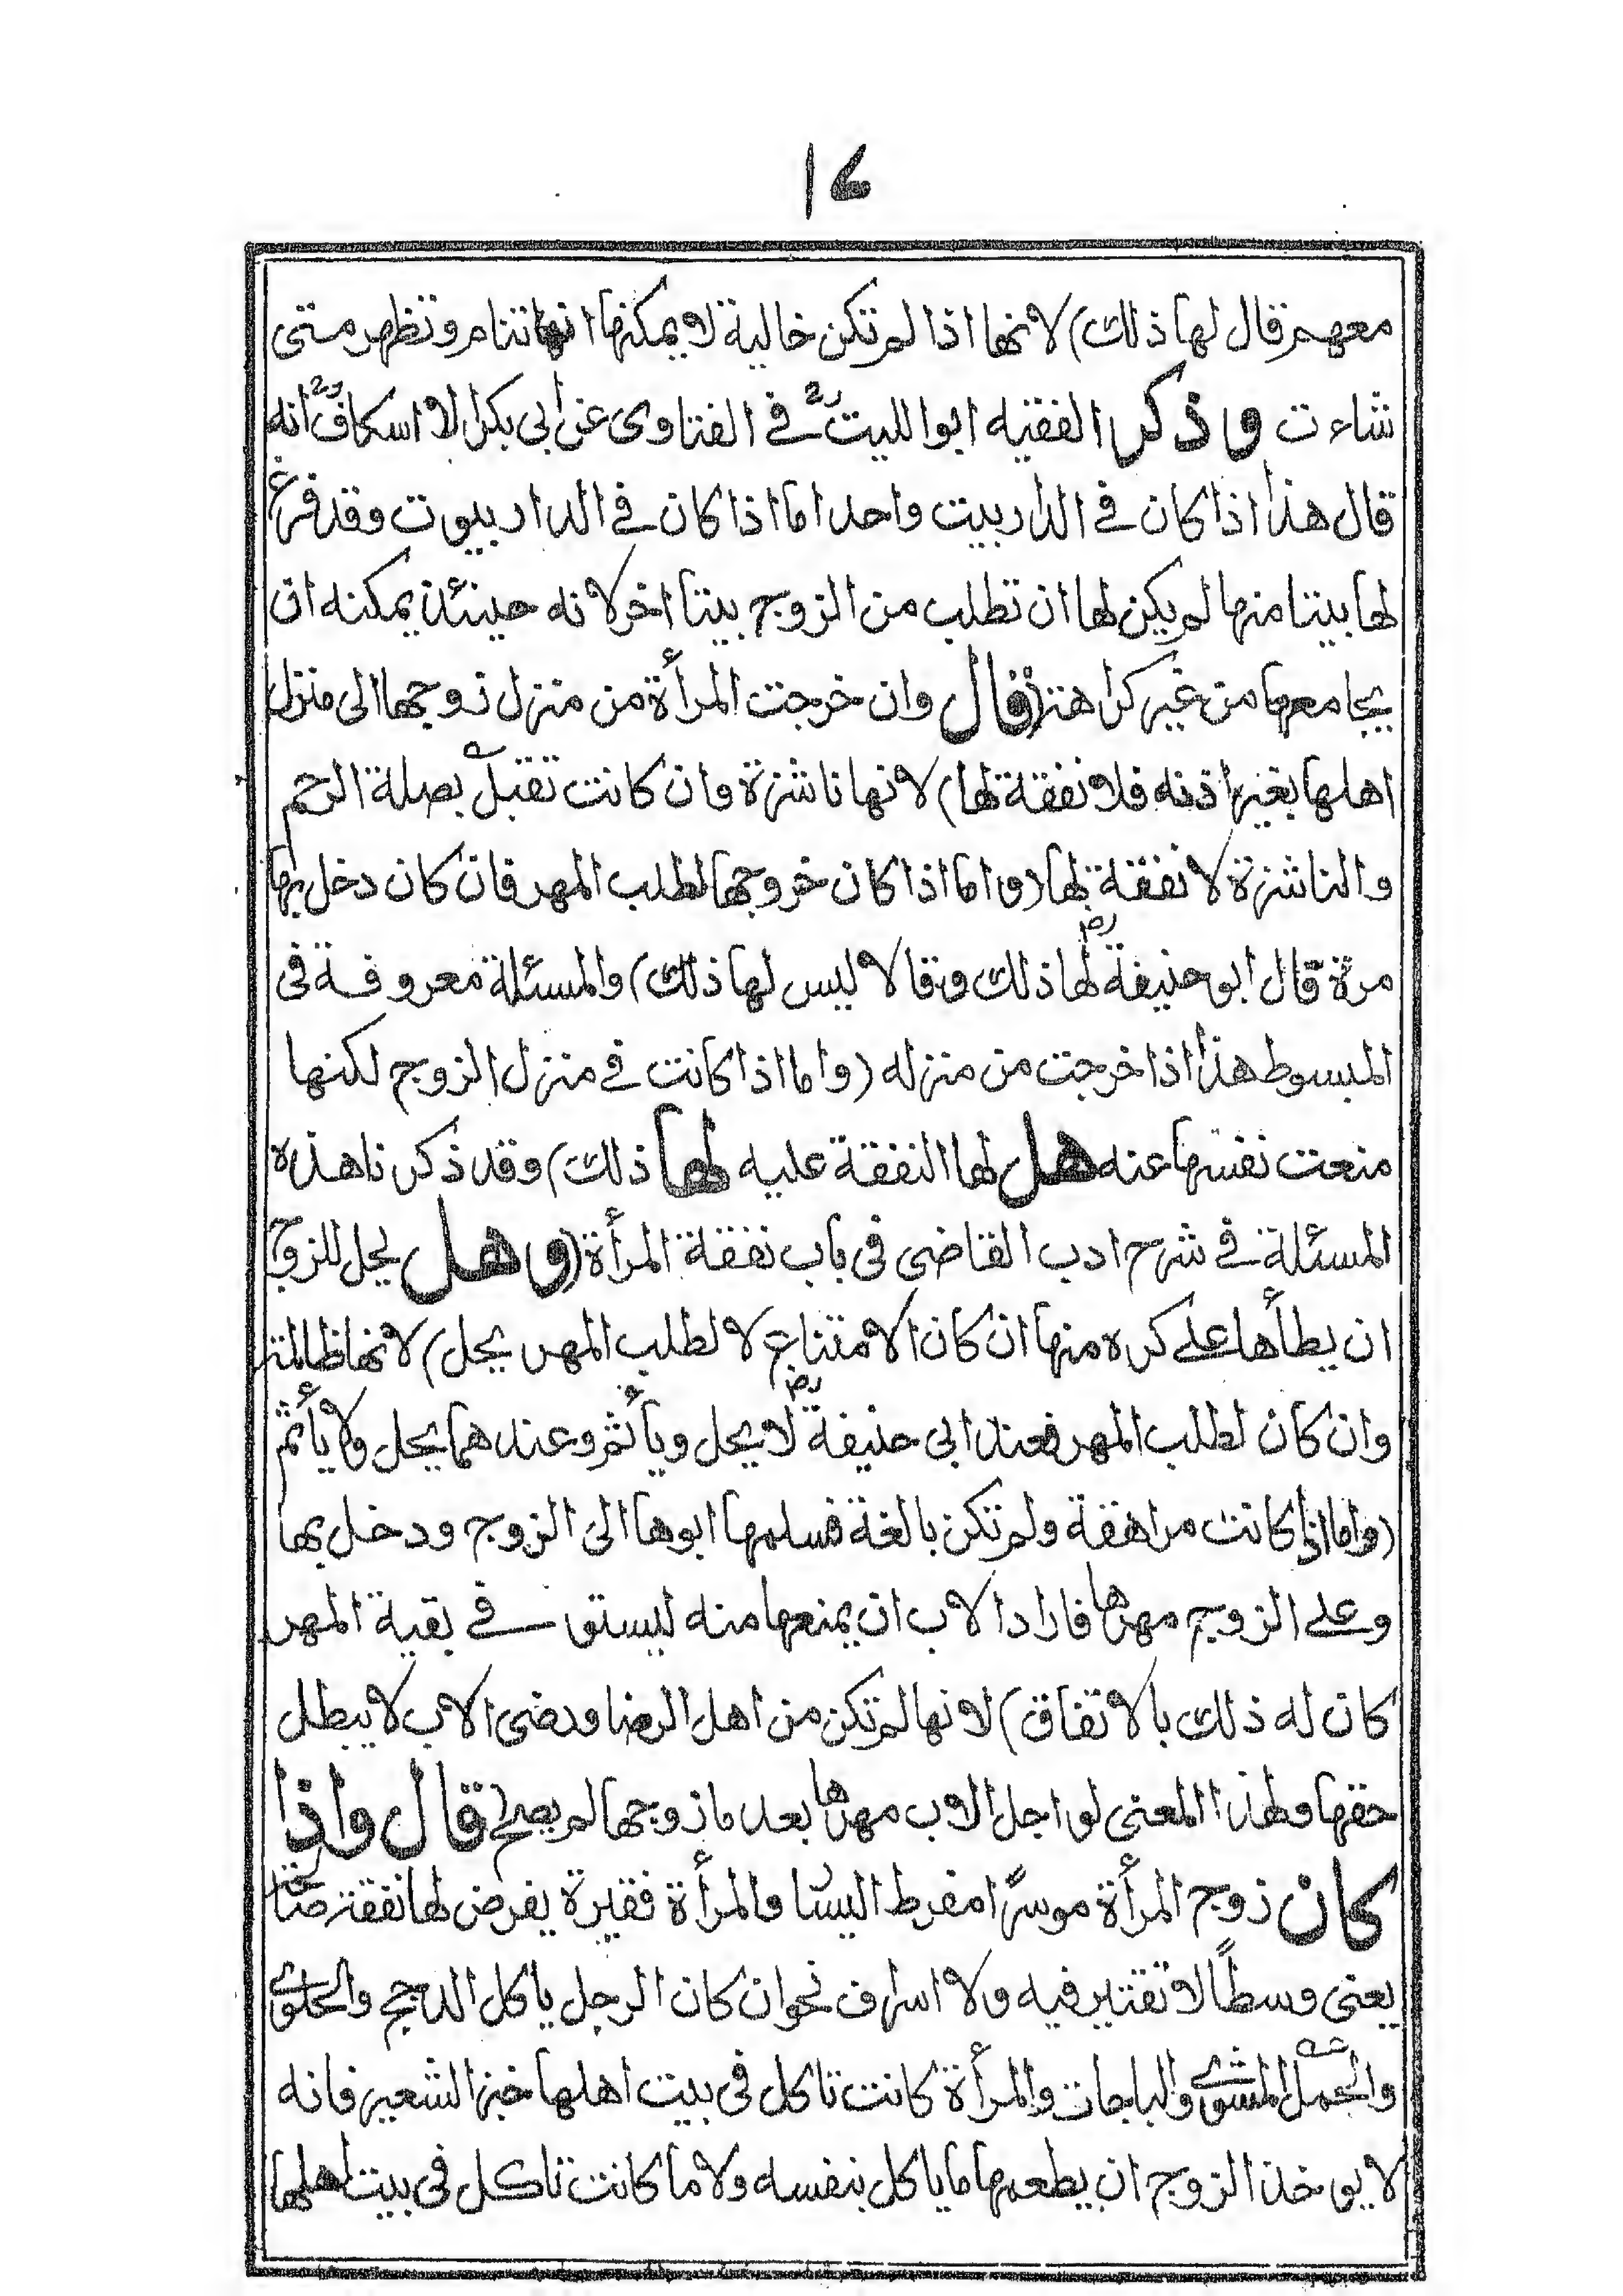 ١٤
معهم قال لها ذلك) لانها اذا لم تكن خالية لا يمكنها انها تنام وتظهر متى
شاءت وذكر الفقيه ابو الليث رح في الفتاوى عن ابي بكر الاسكاف رح انه
قال هذا اذا كان في الدار بيت واحد اما اذا كان في الدار بيوت وقد فرغ
لها بيتا منها لم يكن لها ان تطلب من الزوج بيتا اخر لانه حينئذ يمكنه ان
يجامعها من غير كراهة (قال وان خرجت المرأة من منزل زوجها الى منزل
اهلها بغير اذنه فلا نفقة لها) لانها ناشزة وان كانت تقبل بصلة الرحم
والناشزة لا نفقة لها (واما اذا كان خروجها لطلب المهر فان كان دخل بها
مرة قال ابو حنيفة رض لها ذلك وقالا ليس لها ذلك) والمسئلة معروفة في
المبسوط هذا اذا خرجت من منزله (واما اذا كانت في منزل الزوج لكنها
منعت نفسها عنه هل لها النفقة عليه لها ذلك) وقد ذكرنا هذه
المسئلة في شرح ادب القاضى فى باب نفقة المرأة (وهل يحل للزوج
ان يطأها على كره منها ان كان الامتناع لا لطلب المهر يحل) لانها ظالمة
وان كان لطلب المهر فعند ابى حنيفة رض لا يحل ويأثم وعندهما يحل ولا يأثم
(واما اذا كانت مراهقة ولم تكن بالغة فسلمها ابوها الى الزوج ودخل بها
وعلى الزوج مهرها فاراد الاب ان يمنعها منه ليستوفى بقية المهر
كان له ذلك بالاتفاق) لانها لم تكن من اهل الرضا ورضى الاب لا يبطل
حقها ولهذا المعنى لو اجل الاب مهرها بعد ما زوجها لم يصح (قال واذا
كان زوج المرأة موسرًا مفرط اليسار والمرأة فقيرة يفرض لها نفقة صالحة
يعنى وسطًا لا تقتير فيه ولا اسراف نحو ان كان الرجل يأكل الدجج والحلوى
والحمل المشوى والباجات والمرأة كانت تاكل فى بيت اهلها خبز الشعير فانه
لا يوخذ الزوج ان يطعمها ما ياكل بنفسه ولا ما كانت تاكل فى بيت اهلها